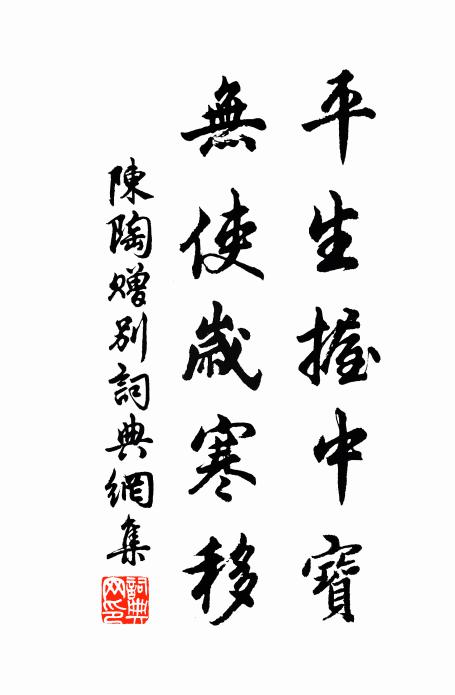 平生握中寶
無使歲寒移
陳陶贈別詞典網集
詞典網印